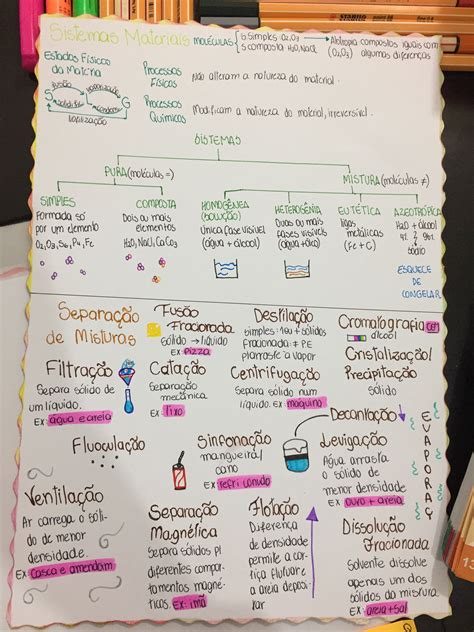 Sistemas Materiais
MOLÉCULAS
S: Simples O2, O3
S composta H2O, NaCl
Alotropia compostos iguais com
(O2O3) algumas diferenças
Estados Físicos
da Matéria
Fusão
S
Solidific
G
Processos
Físicos
Não alteram a natureza do material.
Processos
Químicos
Modificam a natureza do material, irreversível.
SISTEMAS
PURA (moléculas =)
MISTURA (moléculas ≠)
SIMPLES
Formada só
por um elemento
COMPOSTA
Dois ou mais
elementos
H2O, NaCl, CaCO3
HOMOGÊNEA
(SOLUÇÃO)
Única fase visível
(água + álcool)
HETEROGÊNIA
Duas ou mais
fases visíveis
(água + óleo)
EUTÉTICA
ligas
metálicas
(Fe + C)
AZEOTRÓPICA
H2O + álcool
4% 96%
ESQUECE
DE
CONGELAR
Separação
de Misturas
Fusão
Fracionada
Sólido → líquido
EX: pizza
Destilação
Simples: + sólidos
Fracionada: ≠ P.E
vapor
Cromatografia
álcool
Cristalização/
Precipitação
Sólido
Filtração
Separa sólido de
um líquido.
Ex: água e areia
Catação
Separação
mecânica
Ex: lixo
Centrifugação
Separa sólido num
líquido. EX: máquina
Decantação
EVAPORAÇ
Fluoculação
Sinfonação
mangueira/
cano
EX: refri
Levigação
Água arrasta
o sólido de
menor densidade.
EX: ouro + areia
Ventilação
Ar carrega o sóli-
do de menor
densidade.
EX: casca e amendoim
Separação
Magnética
Separa sólidos p/
diferentes compor-
tamentos magné-
ticos. EX: imã
Flotação
Diferença
de densidade
permite a cor-
tiça flutuar e
a areia deposi-
tar
Dissolução
Fracionada
Solvente dissolve
apenas um dos
sólidos da mistura.
EX: areia + sal
STABILO